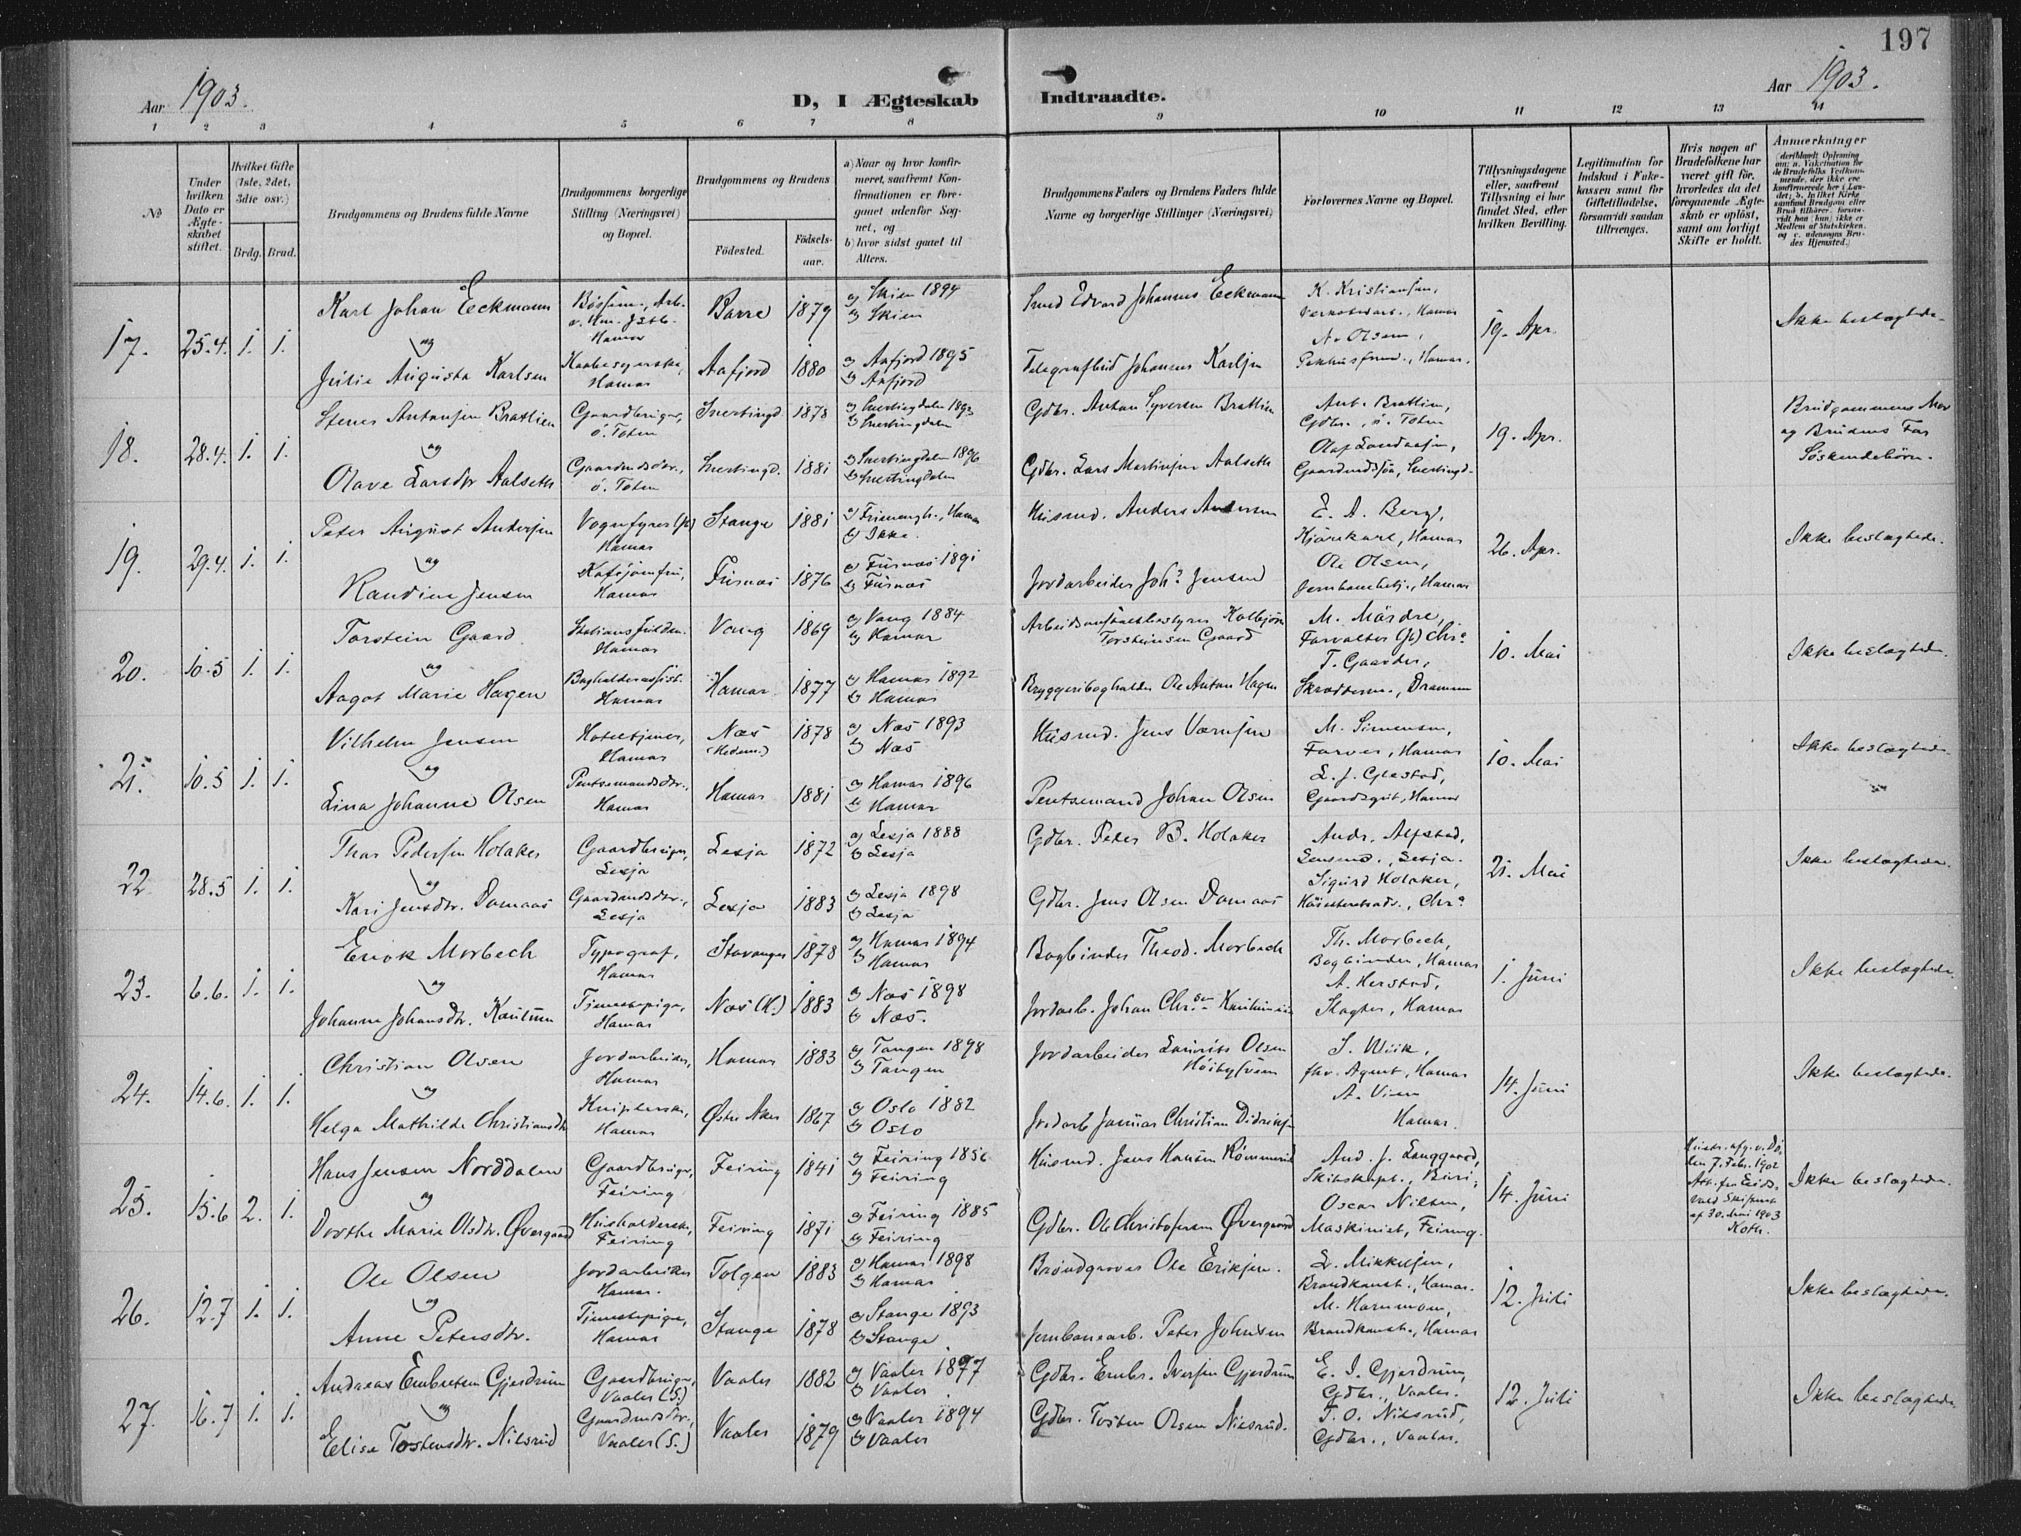 197
Aar 1903.
D, I Ægteskab Indtraadte.
Aar 1903.
1 2 3 4 5 6 7 8 9 10 11 12 13 14
No
Under hvilken Dato er Ægteskabet stiftet.
Hvilket Gifte (1ste, 2det, 3die osv.)
Brdg. Brud.
Brudgommens og Brudens fulde Navne
Brudgommens borgerlige Stilling (Næringsvei) og Bopæl.
Brudgommens og Brudens
Födested.
Födsels-aar.
a) Naar og hvor konfirmeret, saafremt Konfirmationen er foregaaet udenfor Sognet, og
b) hvor sidst gaaet til Alters.
Brudgommens Faders og Brudens Faders fulde Navne og borgerlige Stillinger (Næringsvei)
Forlovernes Navne og Bopæl.
Tillysningsdagene eller, saafremt Tillysning ei har fundet Sted, efter hvilken Bevilling.
Legitimation for Indskud i Enkekassen samt for Giftetilladelse, forsaavidt saadan tiltrænges.
Hvis nogen af Brudefolkene har været gift för, hvorledes da det foregaaende Ægteskab er oplöst, samt om lovligt Skifte er holdt.
Anmærkninger
17. 25.4. 1. 1. Karl Johan Eckmann Hamar Borre 1879 a) Skien 1894 b) Skien Smed Edvard Johannes Eckmann K. Kristiansen, Hamar A. Olsen, Hamar. 19. Apr. Ikke beslægtede.
og
Julie Augusta Karlsen Hamar Aafjord 1880 a) Aafjord 1895 b) Aafjord Telegrafbud Johannes Karlsen
18. 28.4. 1. 1. Stener Antonsen Brattlien Gaardbruger, ö. Toten Snertingd. 1878 a) Snertingdalen 1893 b) Snertingdalen Gdbr. Anton Syversen Brattlien Ant. Brattlien, Gdbr., ö. Toten 19. Apr. Brudgommens Mor og Brudens Far Söskendebörn.
og
Olave Larsdtr Aalseth Gaardmdsdtr., ö. Toten Snertingd. 1881 a) Snertingdalen 1896 b) Snertingdalen Gdbr. Lars Martinsen Aalseth Gaardmdssön, Snertingd.
19. 29.4. 1. 1. Peter August Andersen Hamar Stange 1881 Hamar b) Ikke. Husmd. Anders Andersen E. A. Berg, Hamar 26. Apr. Ikke beslægtede.
og
Randine Jensen Hamar Furnæs 1876 a) Furnæs 1891 b) Furnæs Jordarbeider Johs. Jensen Ole Olsen, Hamar
20. 10.5 1. 1. Torstein Gaard Hamar Vang 1869 a) Vang 1884 b) Hamar Arbeidsanstaltbestyrer Kolbjörn Torsteinsen Gaard M. Mördre, Forvalter T. Gaarder, Drammen 10. Mai Ikke beslægtede.
og
Aagot Marie Hagen Hamar Hamar 1877 a) Hamar 1892 b) Hamar Bryggeribogholder Ole Anton Hagen
21. 10.5 1. 1. Vilhelm Jensen Hoteltjener, Hamar Næs (Hedem.) 1878 a) Næs 1893 b) Næs Husmd. Jens M. Simensen, Farver, Hamar 10. Mai Ikke beslægtede
og
Lina Johanne Olsen Hamar Hamar 1881 a) Hamar 1896 b) Hamar Johan Olsen Hamar
22. 28.5 1. 1. Thor Pedersen Holaker Gaardbruger, Lesja Lesja 1872 a) Lesja 1888 b) Lesja Gdbr. Peder B. Holaker Andr. Alfstad, Lensmd., Lesja. 21. Mai Ikke beslægtede
og
Kari Jensdtr. Domaas Gaardmdsdtr., Lesja Lesja 1883 a) Lesja 1898 b) Lesja Gdbr. Jens Olsen Domaas Sigurd Holaker, Höiesteretsadv., Chr.a
23. 6.6. 1. 1. Erick Morbech Typograf, Hamar Stavanger 1878 a) Hamar 1894 b) Hamar Bogbinder Theod. Morbech Th. Morbech, Bogbinder, Hamar 1. Juni Ikke beslægtede
og
Johanne Johansdtr. Tjenestepige, Hamar Næs (H.) 1883 a) Næs 1898 b) Næs. Jordarb. Johan Chr.sen A. Herstad, Slagter, Hamar
24. 14.6. 1. 1. Christian Olsen Jordarbeider, Hamar Hamar 1883 a) Tangen 1898 b) Tangen Jordarbeider Laurits Olsen S. Wiik, fhv. Agent, Hamar 14. Juni Ikke beslægtede.
og
Helga Mathilde Christiansdtr Hamar Østre Aker 1867 a) Oslo 1882 b) Oslo Jordarb. Christian Hamar.
25. 15.6 2. 1. Hans Jensen Norddalen Gaardbruger, Feiring Feiring 1841 a) Feiring 1856 b) Feiring Husmd. Jens Hansen And. J. Langgaard, Skibskapt., Biri; 14. Juni Hustr. afg. v. Dö- den 7. Febr. 1902 Att. fra Eids- vold Skifteret af 30. Mai 1903 Ikke beslægtede
og
Dorthe Marie Olsdtr. Øvergaard Husholderske, Feiring Feiring 1871 a) Feiring 1885 b) Feiring Gdbr. Ole Christofersen Øvergaard Oscar Nilsen, Maskinist, Feiring.
26. 12.7 1. 1. Ole Olsen Jordarbeider Hamar. Tolgen 1883 a) Hamar 1898 b) Hamar Bröndgraver Ole Eriksen. L. Mikkelsen, Brandkonst., Hamar. 12. Juli Ikke beslægtede.
og
Anne Petersdtr. Tjenestepige, Hamar Stange 1878 a) Stange 1893 b) Stange Jernbanearb. Peter Johnsen Brandkonst., Hamar
27. 16.7 1. 1. Andreas Embretsen Gjerdrum Gaardbruger, Vaaler (S.) Vaaler 1882 a) Vaaler 1897 b) Vaaler Gdbr. Embr. Iversen Gjerdrum E. I. Gjerdrum, Gdbr., Vaaler. 12. Juli Ikke beslægtede
og
Elise Tostensdtr. Nilsrud Gaardmdsdtr., Vaaler (S.) Vaaler 1879 a) Vaaler 1894 b) Vaaler Gdbr. Tosten Olsen Nilsrud. T. O. Nilsrud, Gdbr., Vaaler.